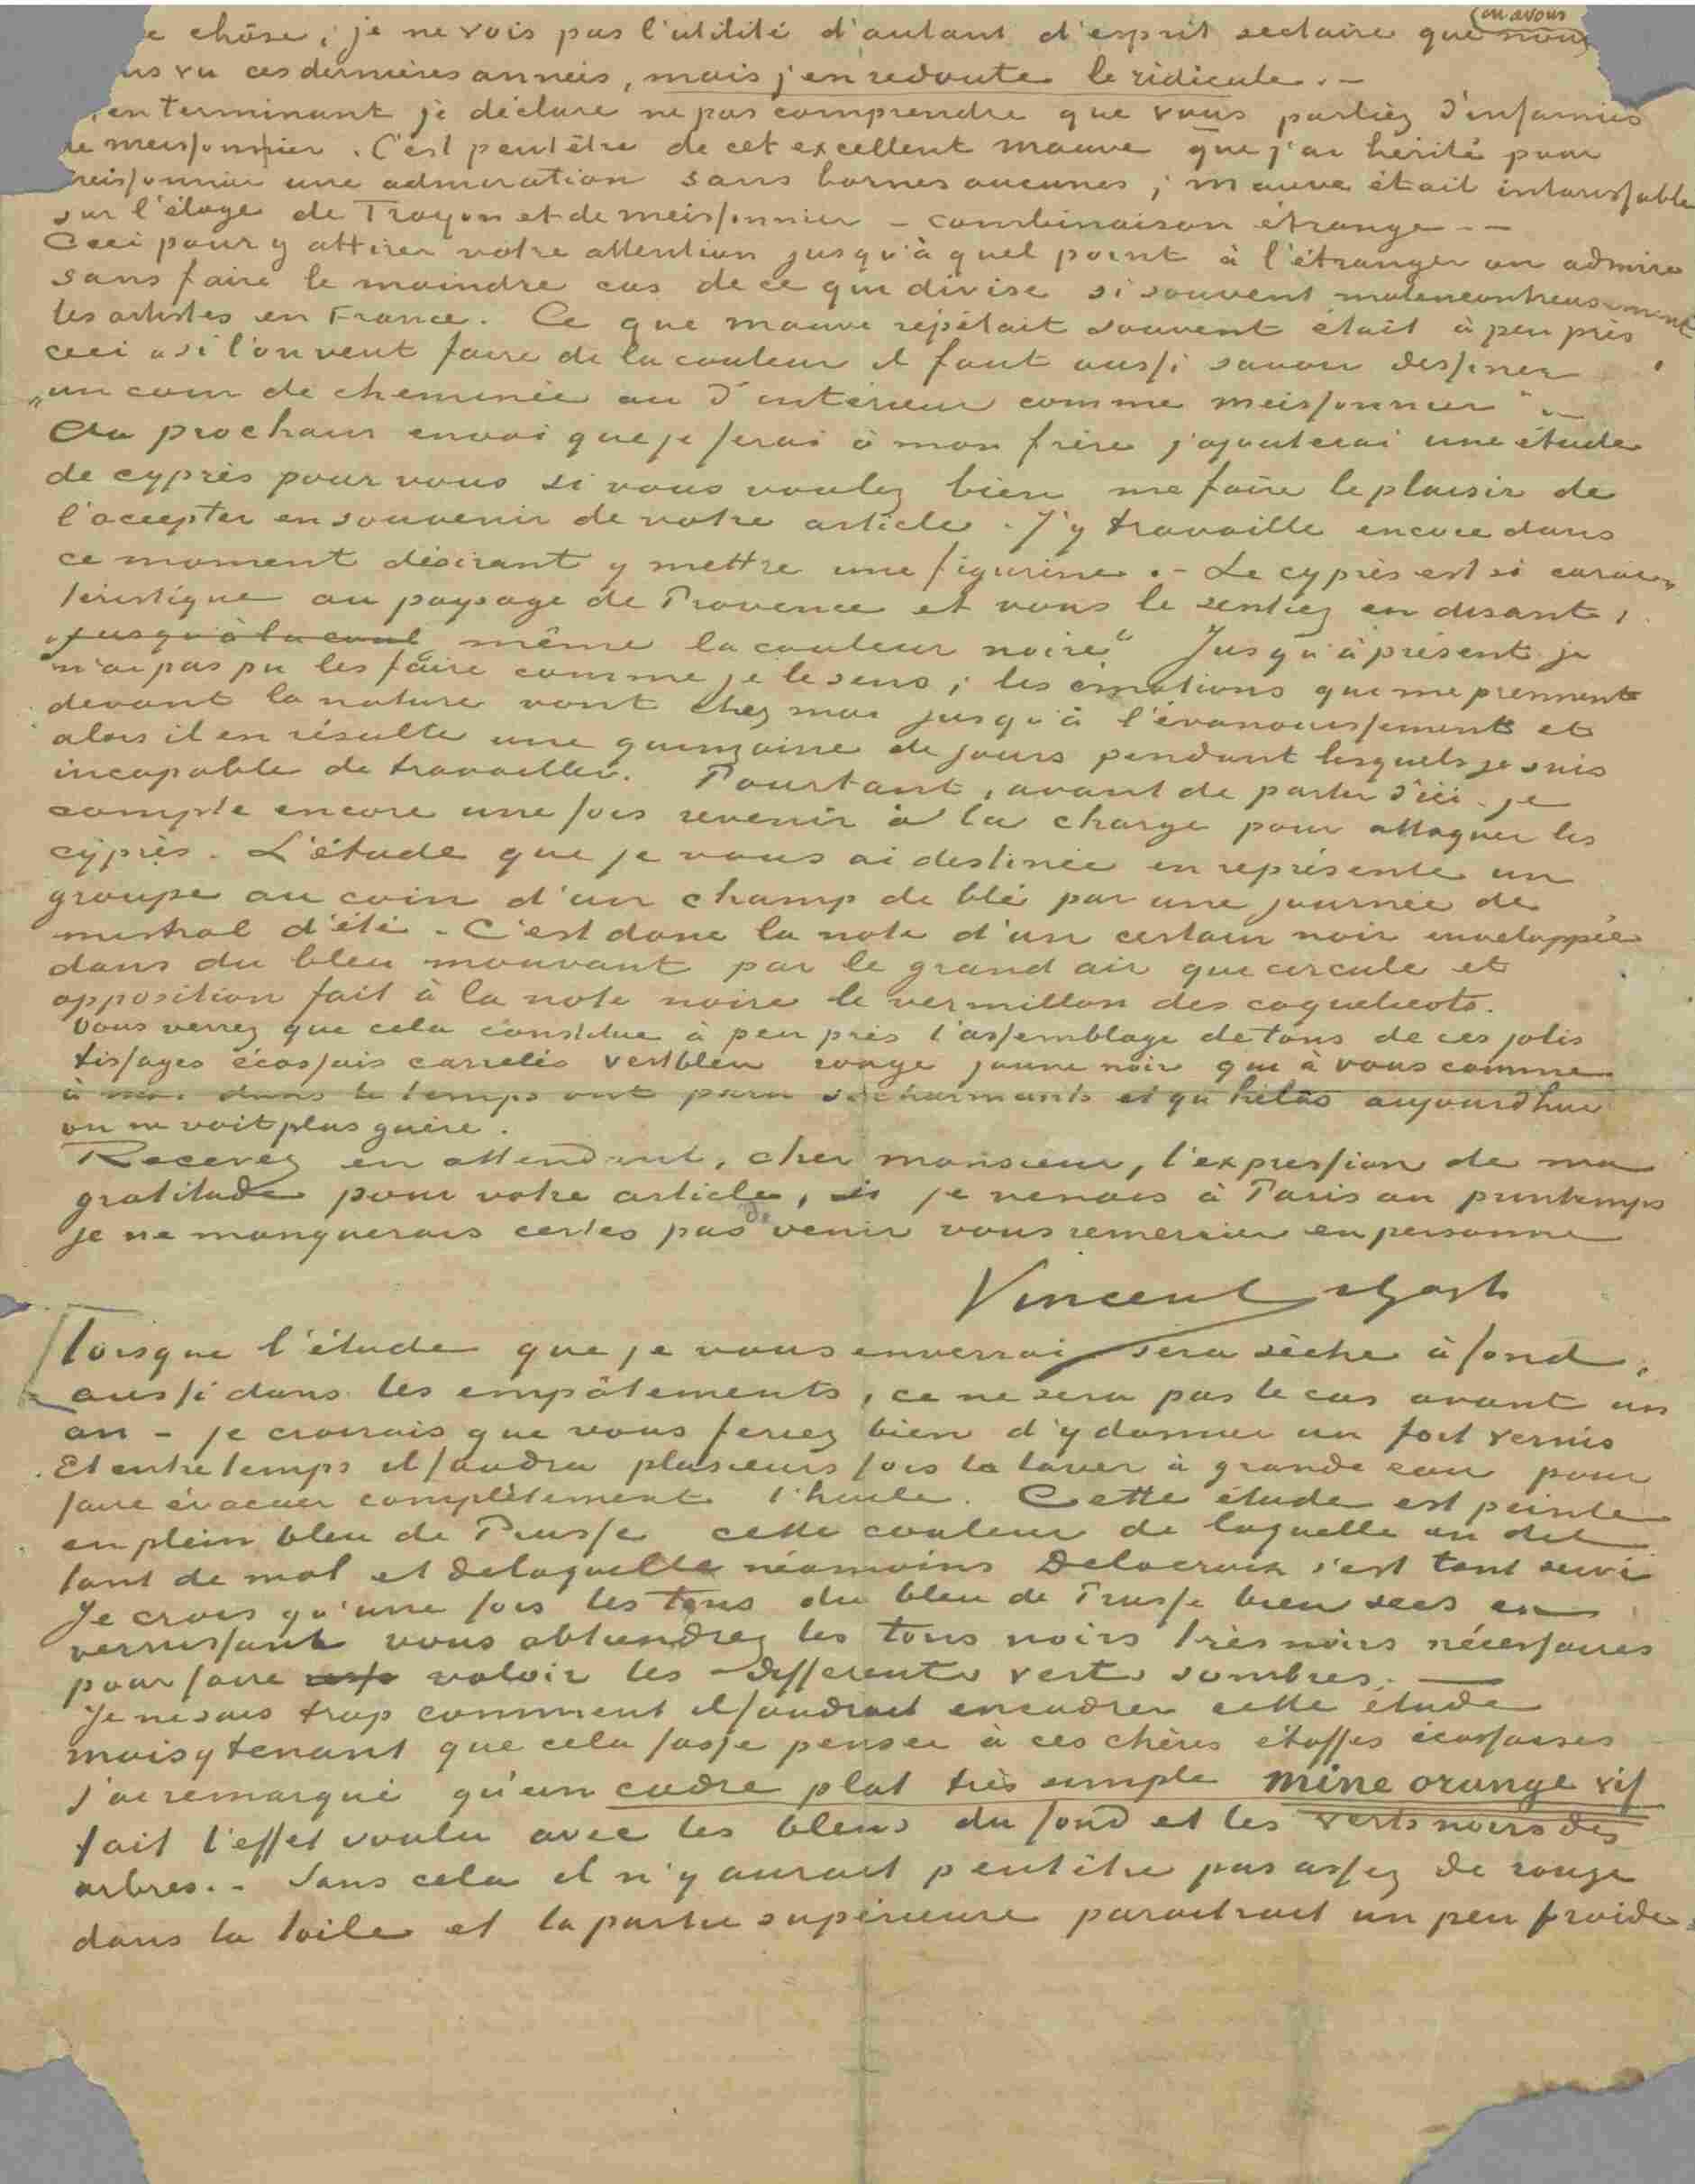 e chôse; je ne vois pas l'utilité d'autant d'esprit sectaire que nous
en avons
ns vu ces dernières années, mais j'en redoute le ridicule. —
en terminant je déclare ne pas comprendre que vous parliez d'infamies
de meissonnier. C'est peutêtre de cet excellent mauve que j'ai hérité pour
meissonnier une admiration sans bornes aucunes; mauve était intarissable
sur l'éloge de Troyon et de meissonnier – combinaison étrange. —
Ceci pour y attirer votre attention jusqu'à quel point à l'étranger on admire
sans faire le moindre cas de ce qui divise si souvent malencontreusement
les artistes en France. Ce que mauve répétait souvent était à peu près
ceci „si l'on veut faire de la couleur il faut aussi savoir dessiner
„un coin de cheminée ou d'intérieur comme meissonnier"
Au prochain envoi que je ferai à mon frère j'ajouterai une étude
de cyprès pour vous si vous voulez bien me faire le plaisir de
l'accepter en souvenir de votre article. J'y travaille encore dans
ce moment désirant y mettre une figurine. – Le cyprès est si carac
téristique au paysage de Provence et vous le sentiez en disant,
„jusqu'à la coul même la couleur noire" Jusqu'à présent je
n'ai pas pu les faire comme je le sens; les émotions qui me prennent
devant la nature vont chez moi jusqu'à l'évanouissement et
alors il en résulte une quinzaine de jours pendant lesquels je suis
incapable de travailler. Pourtant, avant de partir d'ici je
compte encore une fois revenir à la charge pour attaquer les
cyprès. L'étude que je vous ai destinée en représente un
groupe au coin d'un champ de blé par une journée de
mistral d'été. C'est donc la note d'un certain noir enveloppée
dans du bleu mouvant par le grand air qui circule et
opposition fait à la note noire le vermillon des coquelicots.
Vous verrez que cela constitue à peu près l'assemblage de tons de ces jolis
tissages écossais carrelés vert bleu rouge jaune noir qui à vous comme
à moi dans le temps ont paru si charmants et qu'hélas aujourd'hui
on ne voit plus guère.
Recevez en attendant, cher monsieur, l'expression de ma
gratitude pour votre article, si je venais à Paris au printemps
je ne manquerais certes pas de venir vous remercier en personne
Vincent v Gogh
Lorsque l'étude que je vous enverrai sera sèche à fond,
aussi dans les empâtements, ce ne sera pas le cas avant un
an – je croirais que vous feriez bien d'y donner un fort vernis
Et entre temps il faudra plusieurs fois la laver à grande eau pour
faire évacuer complètement l'huile. Cette étude est peinte
en plein bleu de Prusse cette couleur de laquelle on dit
tant de mal et de laquelle néamoins Delacroix s'est tant servi
Je crois qu'une fois les tons du bleu de Prusse bien secs en
vernissant vous obtiendrez les tons noirs très noirs nécessaires
pour faire valoir les différents verts sombres. —
Je ne sais trop comment il faudrait encadrer cette étude
mais y tenant que cela fasse penser à ces chères étoffes écossaises
j'ai remarqué qu'un cadre plat très simple mine orange vif
fait l'effet voulu avec les bleus du fond et les verts noirs des
arbres. – Sans cela il n'y aurait peutêtre pas assez de rouge
dans la toile et la partie supérieure paraitrait un peu froide.